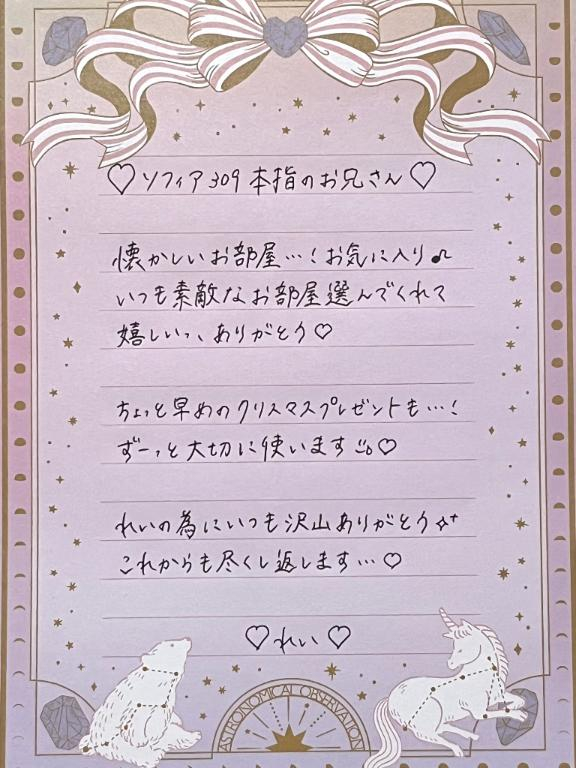 ♡ソフィア309本指のお兄さん♡
懐かしいお部屋…！お気に入り♫
いつも素敵なお部屋選んでくれて
嬉しいっ、ありがとう♡
ちょっと早めのクリスマスプレゼントも…！
ずーっと大切に使います♡
れいの為にいつも沢山ありがとう✧⁺
これからも尽くし返します…♡
♡れい♡
ASTRONOMICAL OBSERVATION